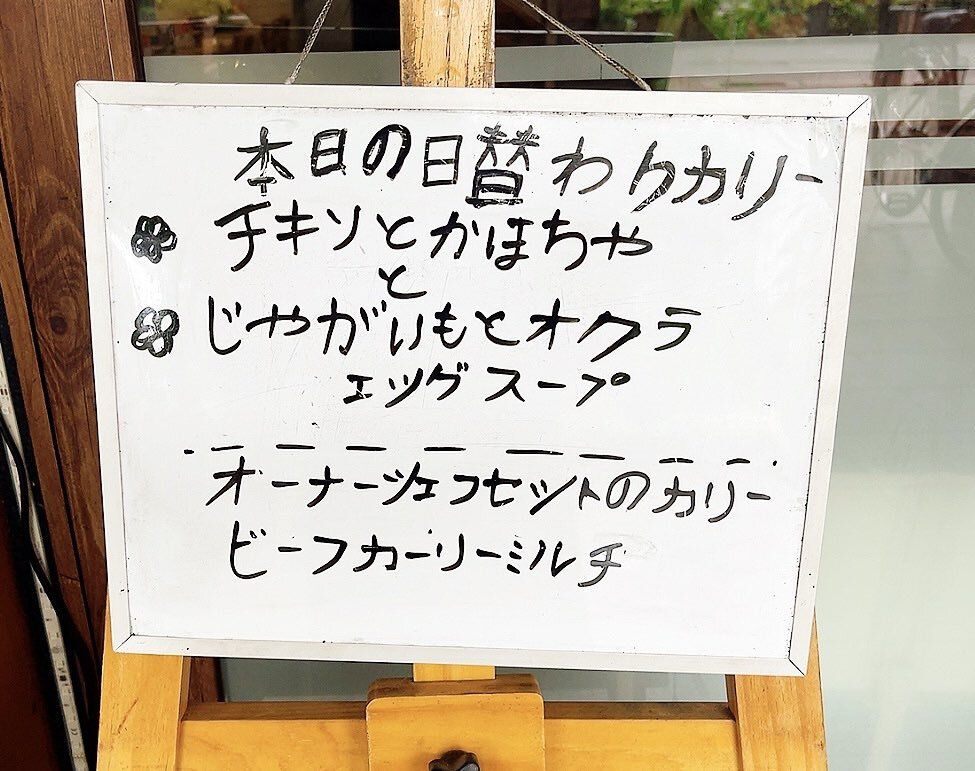 本日の日替わりカリー
チキンとかぼちゃ
と
じゃがいもとオクラ
エッグスープ
オーナーシェフセットのカリー
ビーフカーリーミルチ